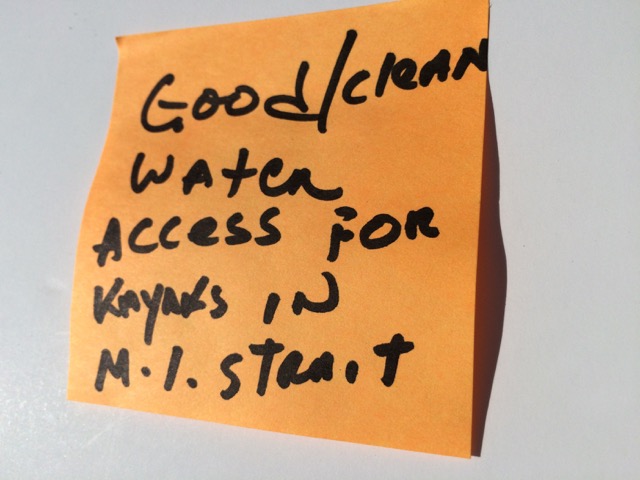 Good/clean
water
Access for
Kayaks in
M.I. Strait